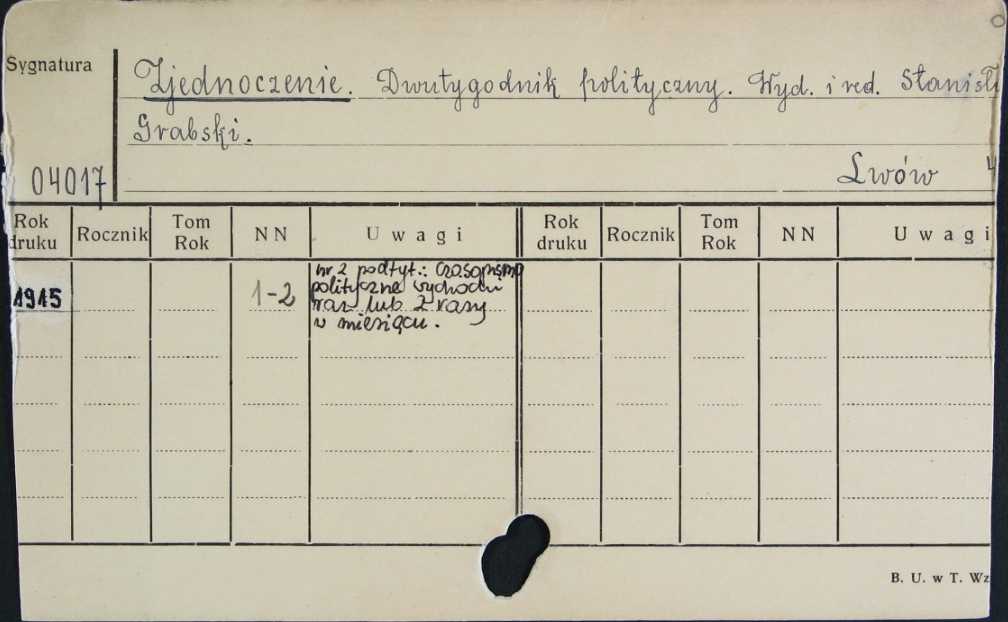 Sygnatura
Zjednoczenie. Dwutygodnik polityczny. Wyd. i red. Stanisł
Grabski.
Lwów 4
04017
Rok druku Rocznik Tom Rok NN Uwagi Rok druku Rocznik Tom Rok NN Uwagi
1915 1-2 nr 2 podtyt.: Czasopismo
polityczne wychodzi
raz lub 2 razy
w miesiącu.
B. U. w T. Wz